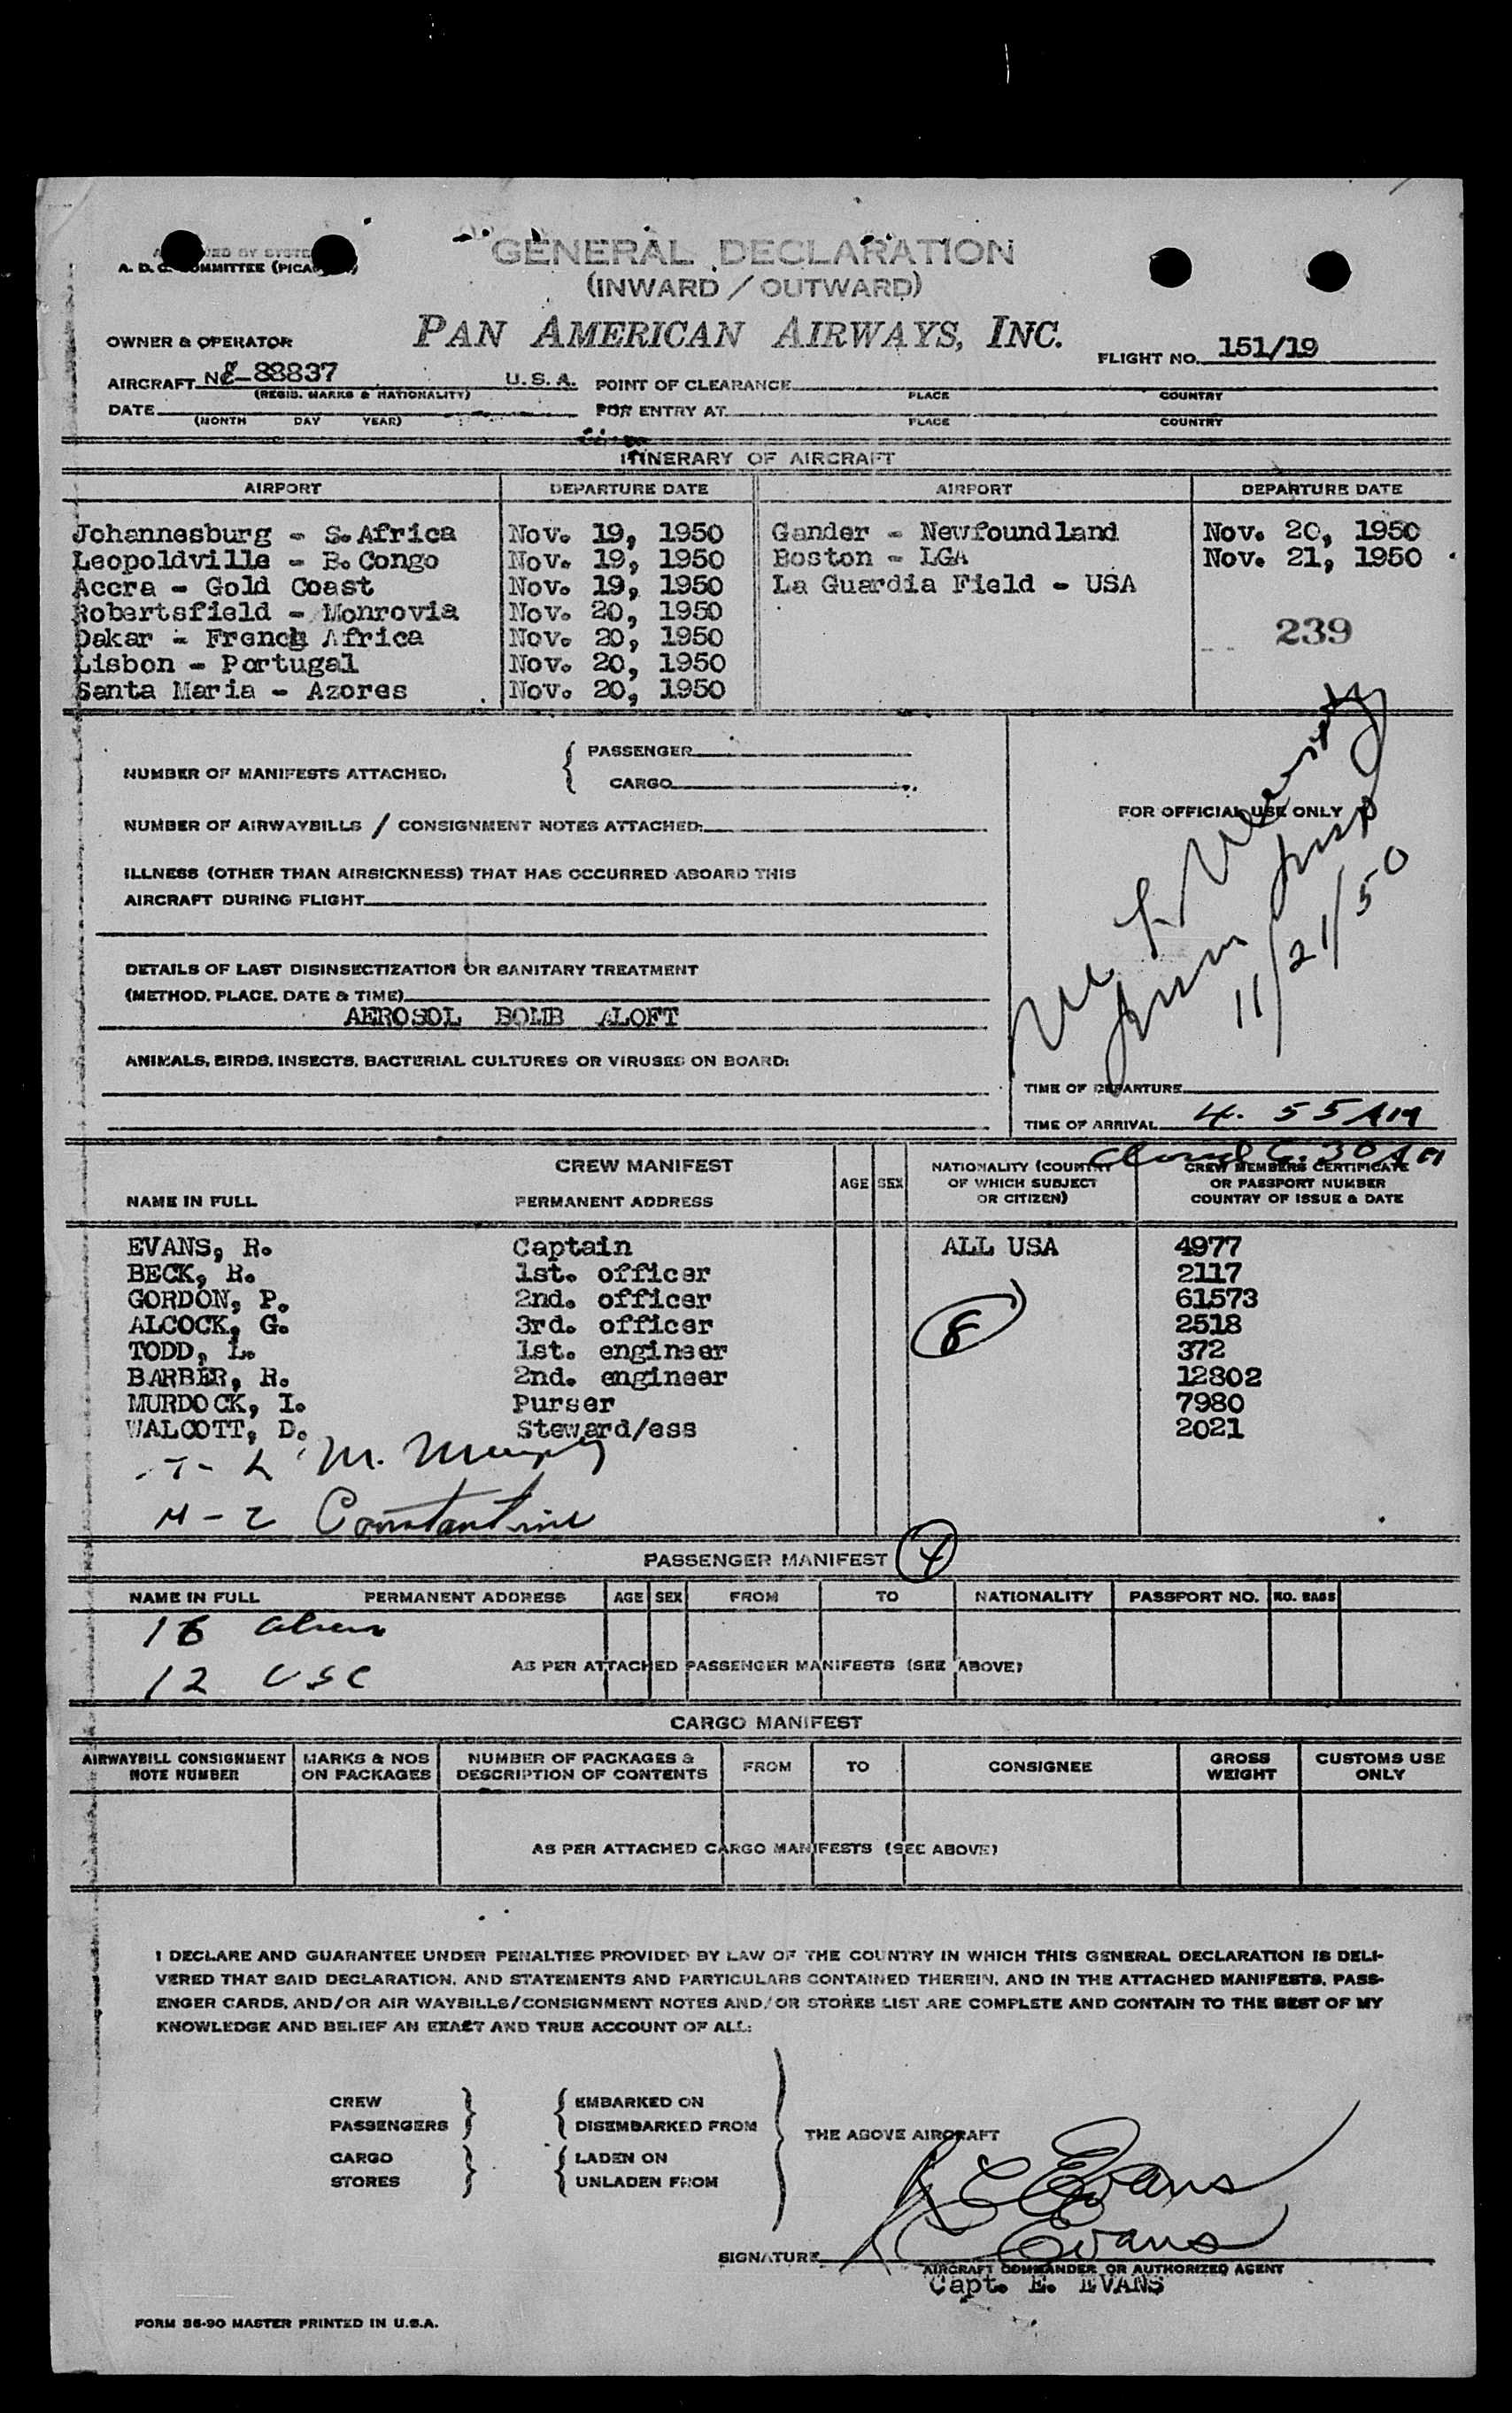 GENERAL DECLARATION
A. D. C. COMMITTEE
(INWARD / OUTWARD)
PAN AMERICAN AIRWAYS, INC.
OWNER & OPERATOR
FLIGHT NO. 151/19
AIRCRAFT 88837 U.S.A. POINT OF CLEARANCE
(REGIS. MARKS & NATIONALITY) PLACE COUNTRY
DATE FOR ENTRY AT
(MONTH DAY YEAR) PLACE COUNTRY
ITINERARY OF AIRCRAFT
AIRPORT DEPARTURE DATE AIRPORT DEPARTURE DATE
Johannesburg - S.Africa Nov. 19, 1950 Gander - Newfoundland Nov. 20, 1950
Leopoldville - B.Congo Nov. 19, 1950 Boston - LGA Nov. 21, 1950
Accra - Gold Coast Nov. 19, 1950 La Guardia Field - USA
Robertsfield - Monrovia Nov. 20, 1950
Dakar - French Africa Nov. 20, 1950 239
Lisbon - Portugal Nov. 20, 1950
Santa Maria - Azores Nov. 20, 1950
NUMBER OF MANIFESTS ATTACHED: { PASSENGER
CARGO
FOR OFFICIAL USE ONLY
NUMBER OF AIRWAYBILLS / CONSIGNMENT NOTES ATTACHED:
ILLNESS (OTHER THAN AIRSICKNESS) THAT HAS OCCURRED ABOARD THIS
AIRCRAFT DURING FLIGHT
11/21/50
DETAILS OF LAST DISINSECTIZATION OR SANITARY TREATMENT
(METHOD, PLACE, DATE & TIME)
AEROSOL BOMB ALOFT
ANIMALS, BIRDS, INSECTS, BACTERIAL CULTURES OR VIRUSES ON BOARD:
TIME OF DEPARTURE
TIME OF ARRIVAL 4.55 AM
CREW MANIFEST
NAME IN FULL PERMANENT ADDRESS AGE SEX NATIONALITY (COUNTRY OF WHICH SUBJECT OR CITIZEN) CREW MEMBERS CERTIFICATE OR PASSPORT NUMBER COUNTRY OF ISSUE & DATE
EVANS, R. Captain ALL USA 4977
BECK, R. 1st. officer 2117
GORDON, P. 2nd. officer 61573
ALCOCK, G. 3rd. officer 8 2518
TODD, L. 1st. engineer 372
BARBER, R. 2nd. engineer 12802
MURDOCK, I. Purser 7980
WALCOTT, D. Steward/ess 2021
M. Murphy
Constantine
PASSENGER MANIFEST
NAME IN FULL PERMANENT ADDRESS AGE SEX FROM TO NATIONALITY PASSPORT NO. NO. BAGS
12 USC
AS PER ATTACHED PASSENGER MANIFESTS (SEE ABOVE)
CARGO MANIFEST
AIRWAYBILL CONSIGNMENT NOTE NUMBER MARKS & NOS ON PACKAGES NUMBER OF PACKAGES & DESCRIPTION OF CONTENTS FROM TO CONSIGNEE GROSS WEIGHT CUSTOMS USE ONLY
AS PER ATTACHED CARGO MANIFESTS (SEE ABOVE)
I DECLARE AND GUARANTEE UNDER PENALTIES PROVIDED BY LAW OF THE COUNTRY IN WHICH THIS GENERAL DECLARATION IS DELI-
VERED THAT SAID DECLARATION, AND STATEMENTS AND PARTICULARS CONTAINED THEREIN, AND IN THE ATTACHED MANIFESTS, PASS-
ENGER CARDS, AND/OR AIR WAYBILLS/CONSIGNMENT NOTES AND/OR STORES LIST ARE COMPLETE AND CONTAIN TO THE BEST OF MY
KNOWLEDGE AND BELIEF AN EXACT AND TRUE ACCOUNT OF ALL:
CREW } { EMBARKED ON
PASSENGERS DISEMBARKED FROM
THE ABOVE AIRCRAFT
CARGO } { LADEN ON
STORES UNLADEN FROM
R C Evans
R C Evans
SIGNATURE
AIRCRAFT COMMANDER OR AUTHORIZED AGENT
Capt. E. EVANS
FORM 36-90 MASTER PRINTED IN U.S.A.